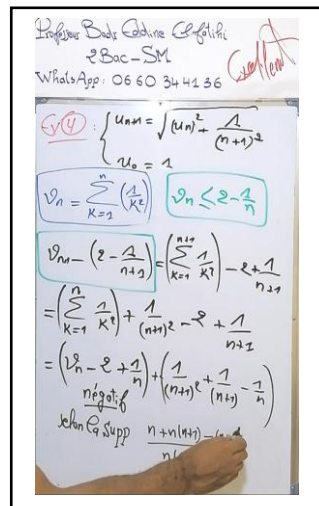 Professeur Badr Eddine El fatihi
2Bac-SM
WhatsApp: 06 60 34 41 36
Excellent
Ex 4 : { u_{n+1} = √((u_n)² + 1/(n+1)²)
u_0 = 1
v_n = ∑_{k=1}^{n} (1/k²)   v_n ≤ 2 - 1/n
v_{n+1} - (2 - 1/(n+1)) = (∑_{k=1}^{n+1} 1/k²) - 2 + 1/(n+1)
= (∑_{k=1}^{n} 1/k²) + 1/(n+1)² - 2 + 1/(n+1)
= (v_n - 2 + 1/n) + (1/(n+1)² + 1/(n+1) - 1/n)
négatif
selon la supp   n + n(n+1) - / n(